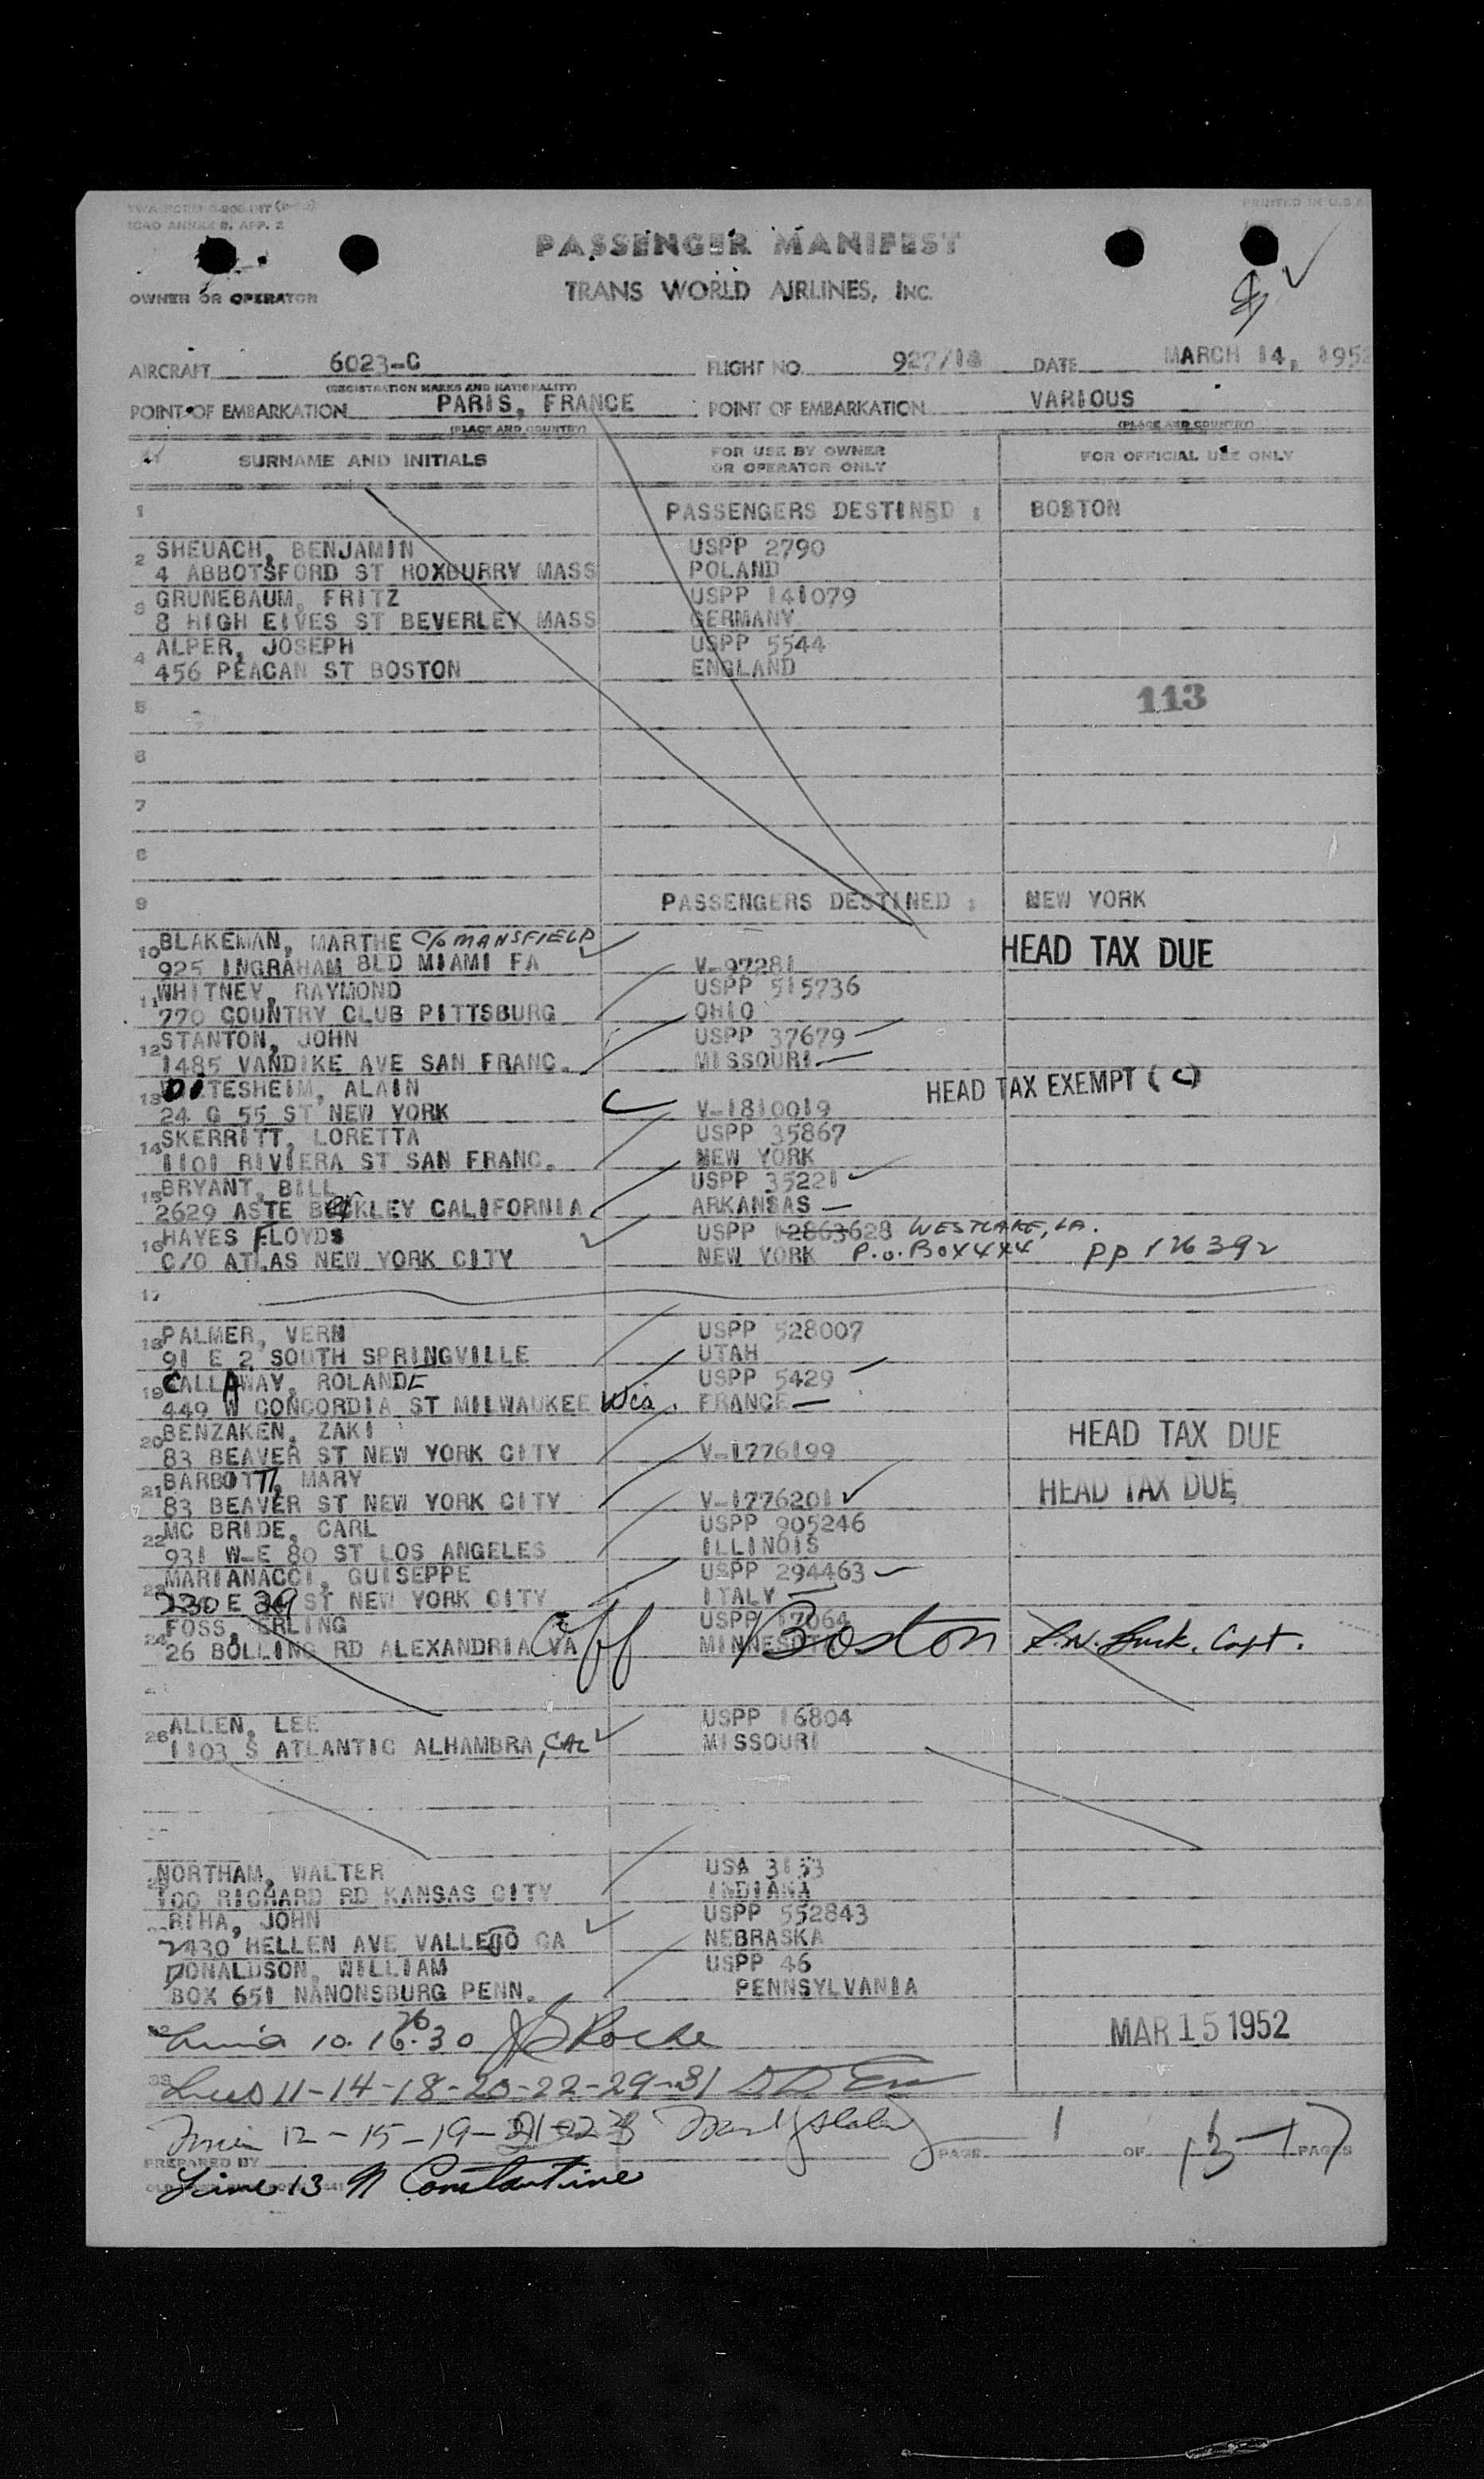 TWA FORM 0-206-INT
ICAO ANNEX 9, APP. 2
PRINTED IN U.S.A.
PASSENGER MANIFEST
TRANS WORLD AIRLINES, INC.
OWNER OR OPERATOR
AIRCRAFT 6023-C FLIGHT NO. 927/14 DATE MARCH 14, 1952
(REGISTRATION MARKS AND NATIONALITY)
POINT OF EMBARKATION PARIS, FRANCE POINT OF EMBARKATION VARIOUS
(PLACE AND COUNTRY) (PLACE AND COUNTRY)
SURNAME AND INITIALS FOR USE BY OWNER OR OPERATOR ONLY FOR OFFICIAL USE ONLY
1 PASSENGERS DESTINED : BOSTON
2 SHEUACH, BENJAMIN USPP 2790
4 ABBOTSFORD ST ROXBURRY MASS POLAND
3 GRUNEBAUM, FRITZ USPP 141079
8 HIGH EIVES ST BEVERLEY MASS GERMANY
4 ALPER, JOSEPH USPP 5544
456 PEACAN ST BOSTON ENGLAND
5 113
6
7
8
9 PASSENGERS DESTINED : NEW YORK
10 BLAKEMAN, MARTHE C/o MANSFIELD HEAD TAX DUE
925 INGRAHAM BLD MIAMI FA V-97281
11 WHITNEY, RAYMOND USPP 515736
770 COUNTRY CLUB PITTSBURG OHIO
12 STANTON, JOHN USPP 37679
1485 VANDIKE AVE SAN FRANC. MISSOURI
13 DITESHEIM, ALAIN HEAD TAX EXEMPT (C)
24 G 55 ST NEW YORK V-1810019
14 SKERRITT, LORETTA USPP 35867
1101 RIVIERA ST SAN FRANC. NEW YORK
15 BRYANT, BILL USPP 35221
2629 ASTE BERKLEY CALIFORNIA ARKANSAS
16 HAYES FLOYDS USPP 12863628 WESTLAKE, LA.
C/O ATLAS NEW YORK CITY NEW YORK P.O. BOX 444 PP 126392
17
18 PALMER, VERN USPP 528007
91 E 2 SOUTH SPRINGVILLE UTAH
19 CALLAWAY, ROLANDE USPP 5429
449 W CONCORDIA ST MILWAUKEE Wis. FRANCE
20 BENZAKEN, ZAKI HEAD TAX DUE
83 BEAVER ST NEW YORK CITY V-1776199
21 BARBOTTI, MARY HEAD TAX DUE
83 BEAVER ST NEW YORK CITY V-1776201
22 MC BRIDE, CARL USPP 905246
931 W-E 80 ST LOS ANGELES ILLINOIS
23 MARIANACCI, GUISEPPE USPP 294463
230 E 39 ST NEW YORK CITY ITALY
24 FOSS, ERLING USPP 17064
26 BOLLING RD ALEXANDRIA VA MINNESOTA off Boston Capt.
26 ALLEN, LEE USPP 16804
1103 S ATLANTIC ALHAMBRA, CAL MISSOURI
NORTHAM, WALTER USA 3153
100 RICHARD RD KANSAS CITY INDIANA
RIHA, JOHN USPP 552843
2430 HELLEN AVE VALLEJO CA NEBRASKA
DONALDSON, WILLIAM USPP 46
BOX 651 NANONSBURG PENN. PENNSYLVANIA
10. 16. 26 30 Roche MAR 15 1952
33 Lines 11-14-18-20-22-29-31
12-15-19-21-
PREPARED BY PAGE 1 OF PAGES
Line 13 Constantine